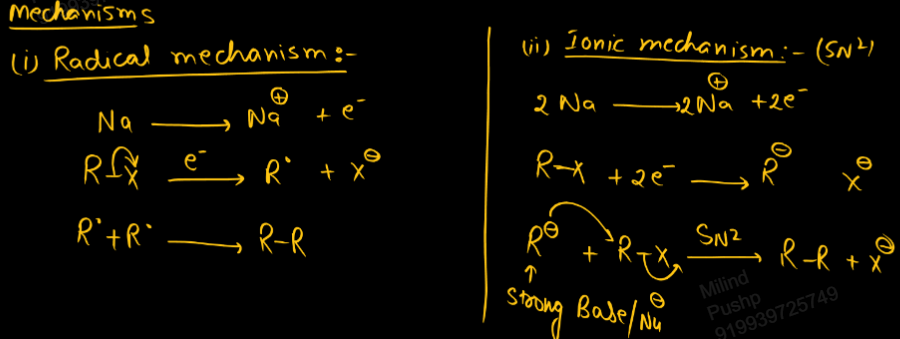 Mechanisms
(i) Radical mechanism :-
Na ⟶ Na⊕ + e⁻
R-X e⁻⟶ R• + X⊖
R• + R• ⟶ R-R
(ii) Ionic mechanism :- (SN²)
2 Na ⟶ 2Na⊕ + 2e⁻
R-X + 2e⁻ ⟶ R⊖ X⊖
R⊖ + R-X SN2⟶ R-R + X⊖
↑
Strong Base/Nu⊖
Milind
Pushp
919939725749